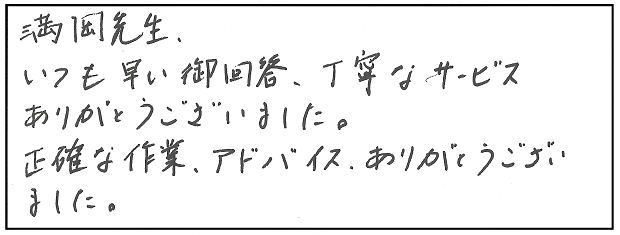 満岡先生、
いつも早い御回答、丁寧なサービス
ありがとうございました。
正確な作業、アドバイス、ありがとうござい
ました。